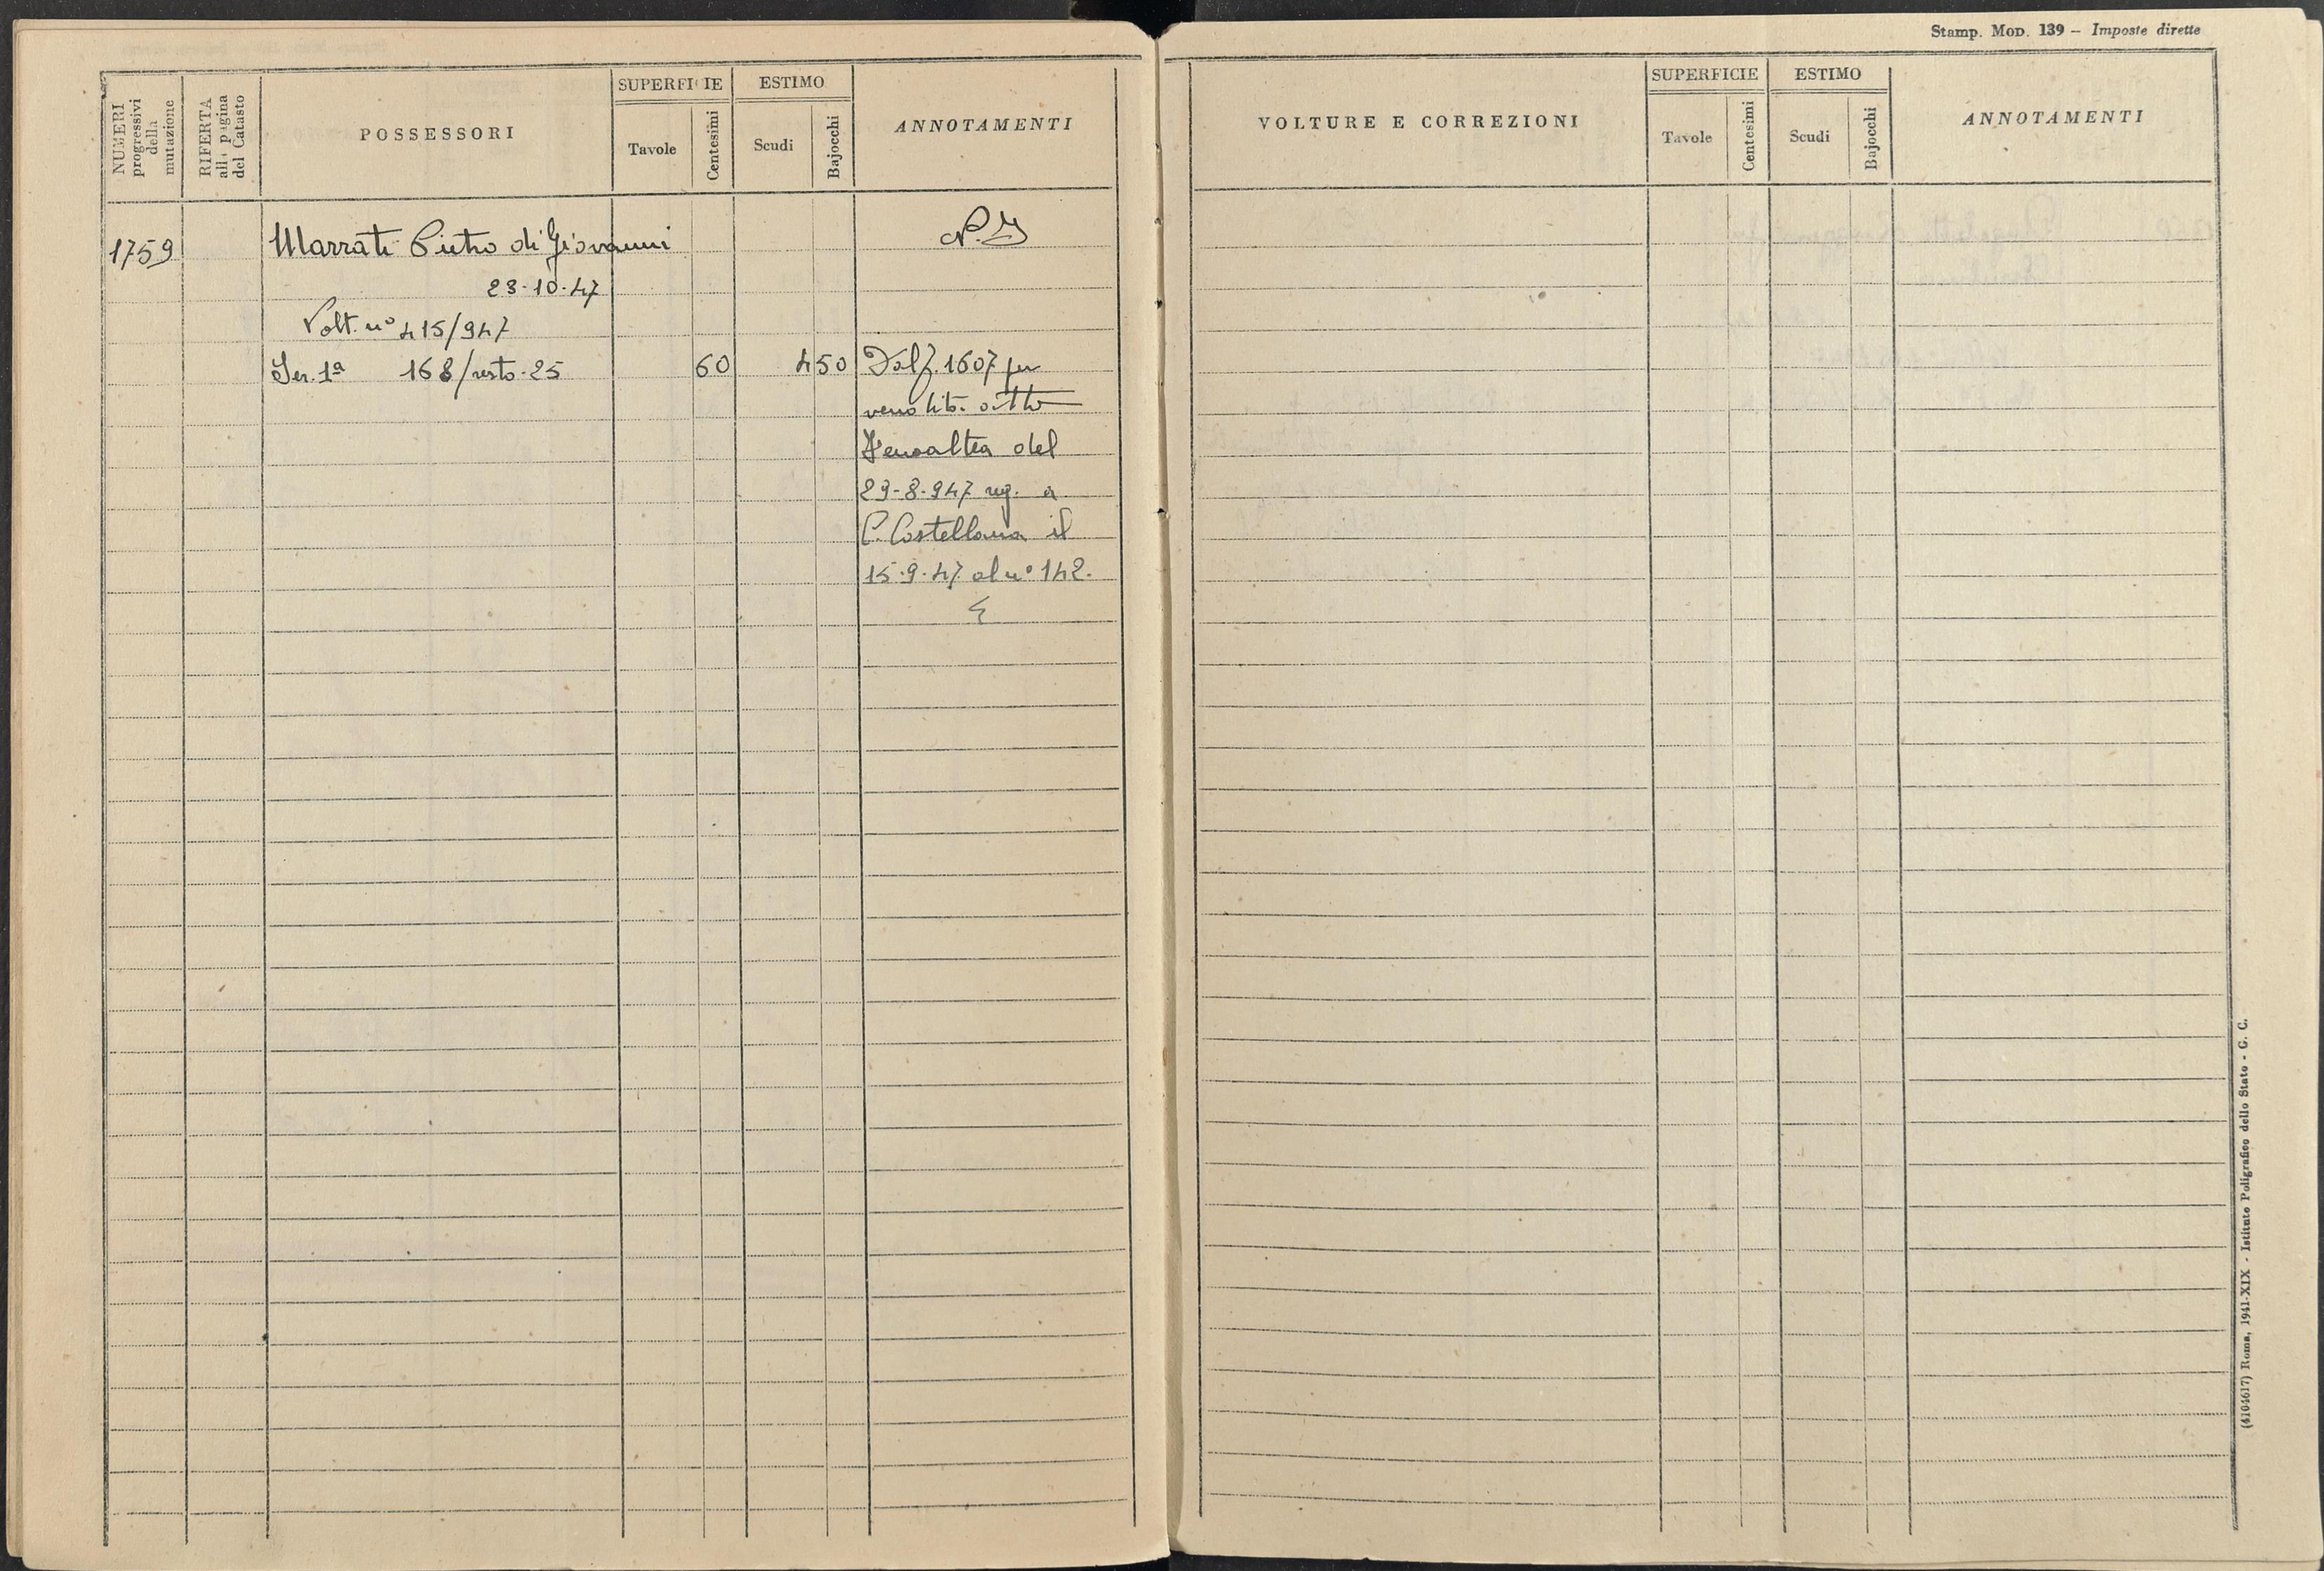 Stamp. Mod. 139 – Imposte dirette
NUMERI progressivi della mutazione
RIFERTA alla pagina del Catasto
POSSESSORI
SUPERFICIE
Tavole
Centesimi
ESTIMO
Scudi
Bajocchi
ANNOTAMENTI
VOLTURE E CORREZIONI
SUPERFICIE
Tavole
Centesimi
ESTIMO
Scudi
Bajocchi
ANNOTAMENTI
1759
Marrati Pietro di Giovanni
N.I
23-10-47
Volt. n° 415/947
Ser. 1ª 168/resto-25
60
4 50
Dal f. 1607 per
vendita atto
del
29-8-947 reg. a
C. Castellana il
15-9-47 al n° 142.
(4104617) Roma, 1941-XIX - Istituto Poligrafico dello Stato - G. C.